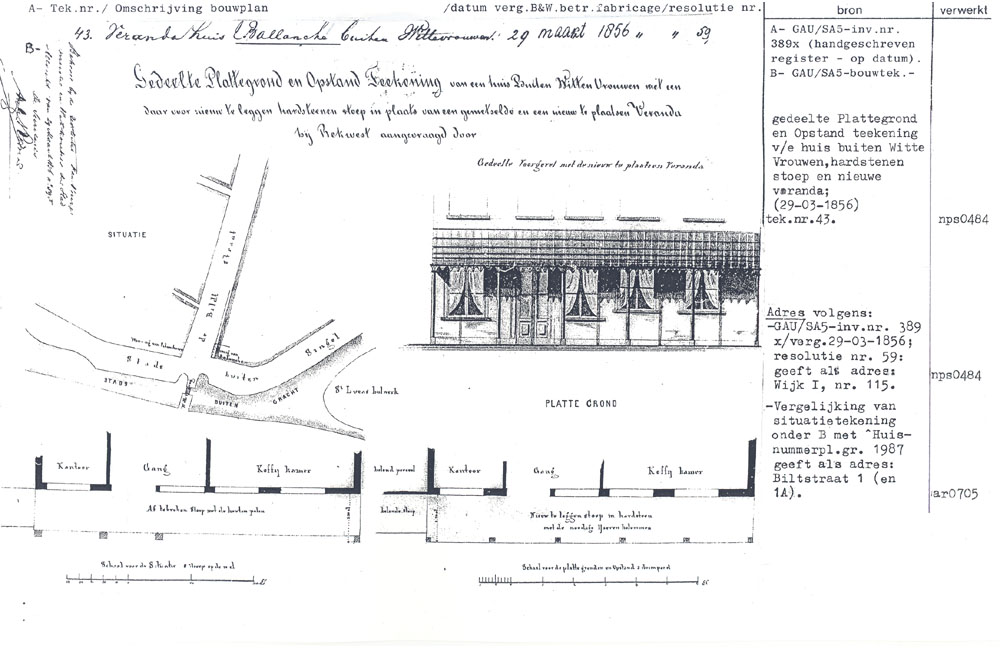 A- Tek.nr./ Omschrijving bouwplan /datum verg.B&W.betr.fabricage/resolutie nr.
bron
verwerkt
43. Veranda huis Ballanche buiten Wittevrouwen 29 maart 1856 " " 59
B-
Gedeelte Plattegrond en Opstand Teekening van een huis Buiten Witten Vrouwen met een
daar voor nieuw te leggen hardsteenen stoep in plaats van een gemetselde en een nieuw te plaatsen Veranda
bij Rekwest aangevraagd door
Gedeelte Voorgevel met de nieuw te plaatsen Veranda
SITUATIE
de Bildt straat
Stads buiten Singel
STADS BUITEN GRACHT
PLATTE GROND
Kantoor
Gang
Koffy kamer
belend perceel
Kantoor
Gang
Koffy kamer
Af te breken Stoep met de houten palen
belende stoep
Nieuw te leggen stoep in hardsteen
met de noodige Yzeren kolommen
Schaal voor de Situatie
Schaal voor de platte gronden en Opstand
A- GAU/SA5-inv.nr.
389x (handgeschreven
register - op datum).
B- GAU/SA5-bouwtek.-
gedeelte Plattegrond
en Opstand teekening
v/e huis buiten Witte
Vrouwen,hardstenen
stoep en nieuwe
veranda;
(29-03-1856)
tek.nr.43.
nps0484
Adres volgens:
-GAU/SA5-inv.nr. 389
x/verg.29-03-1856;
resolutie nr. 59:
geeft als adres:
Wijk I, nr. 115.
nps0484
-Vergelijking van
situatietekening
onder B met ^Huis-
nummerpl.gr. 1987
geeft als adres:
Biltstraat 1 (en
1A).
ar0705